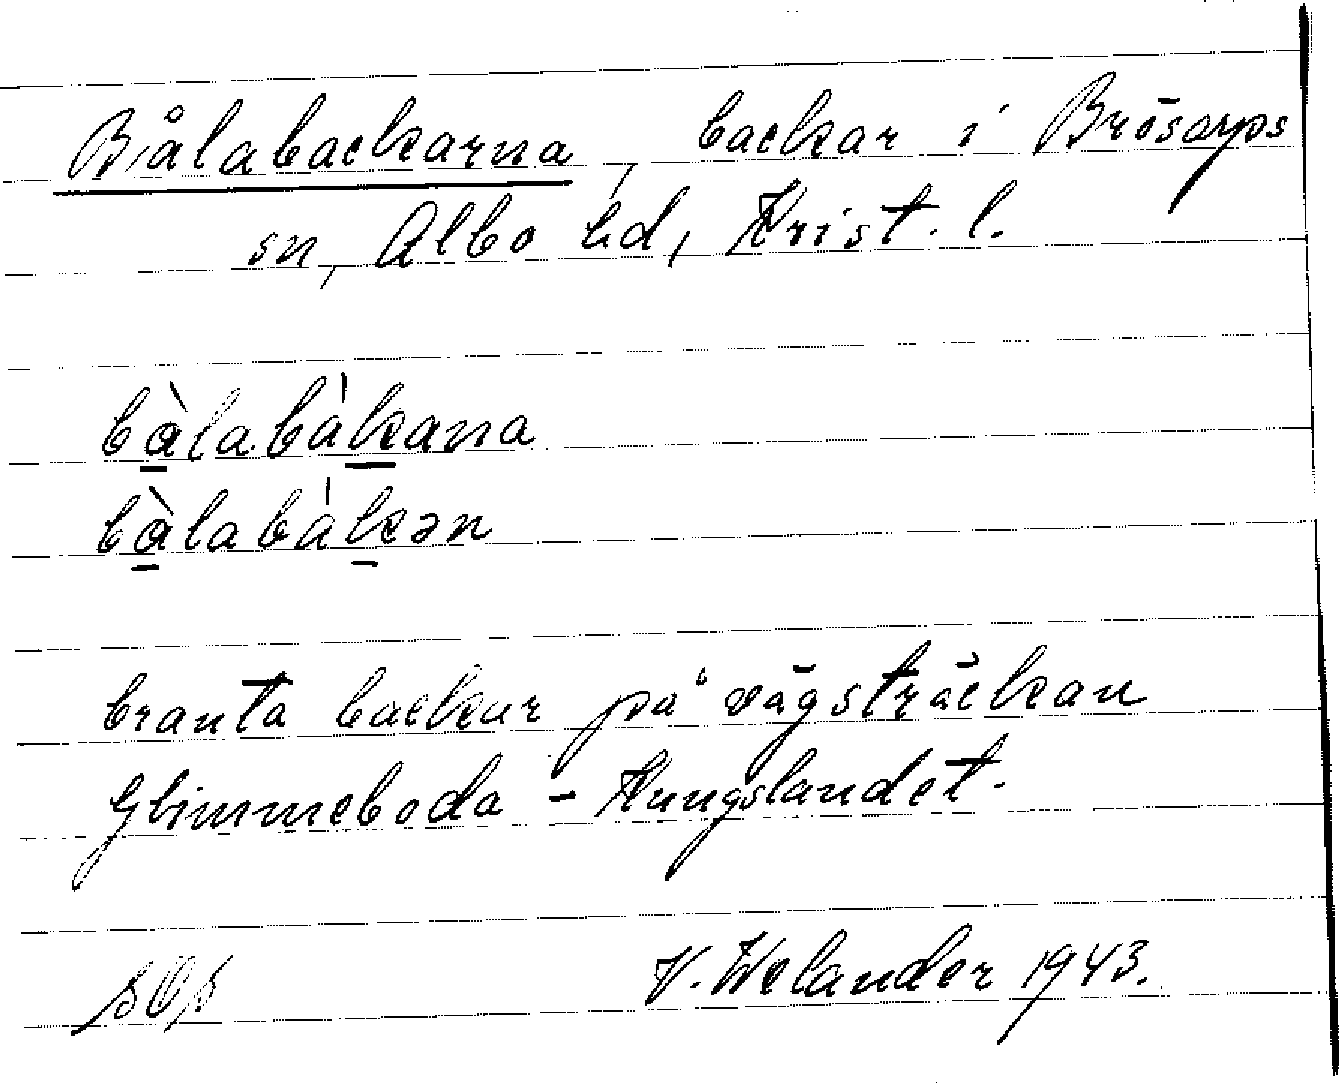 Bålabackarna, backar i Brösarps
sn, Albo hd, Krist. l.
bàlabàkana
bàlabàkən
branta backar på vägsträckan
Glimmeboda - Kungslandet.
V. Welander 1943.